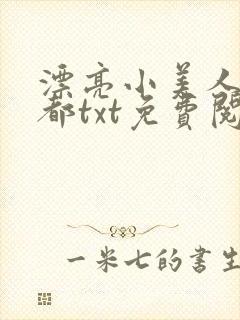 漂亮小美人
都txt免費閱
一米七的書生